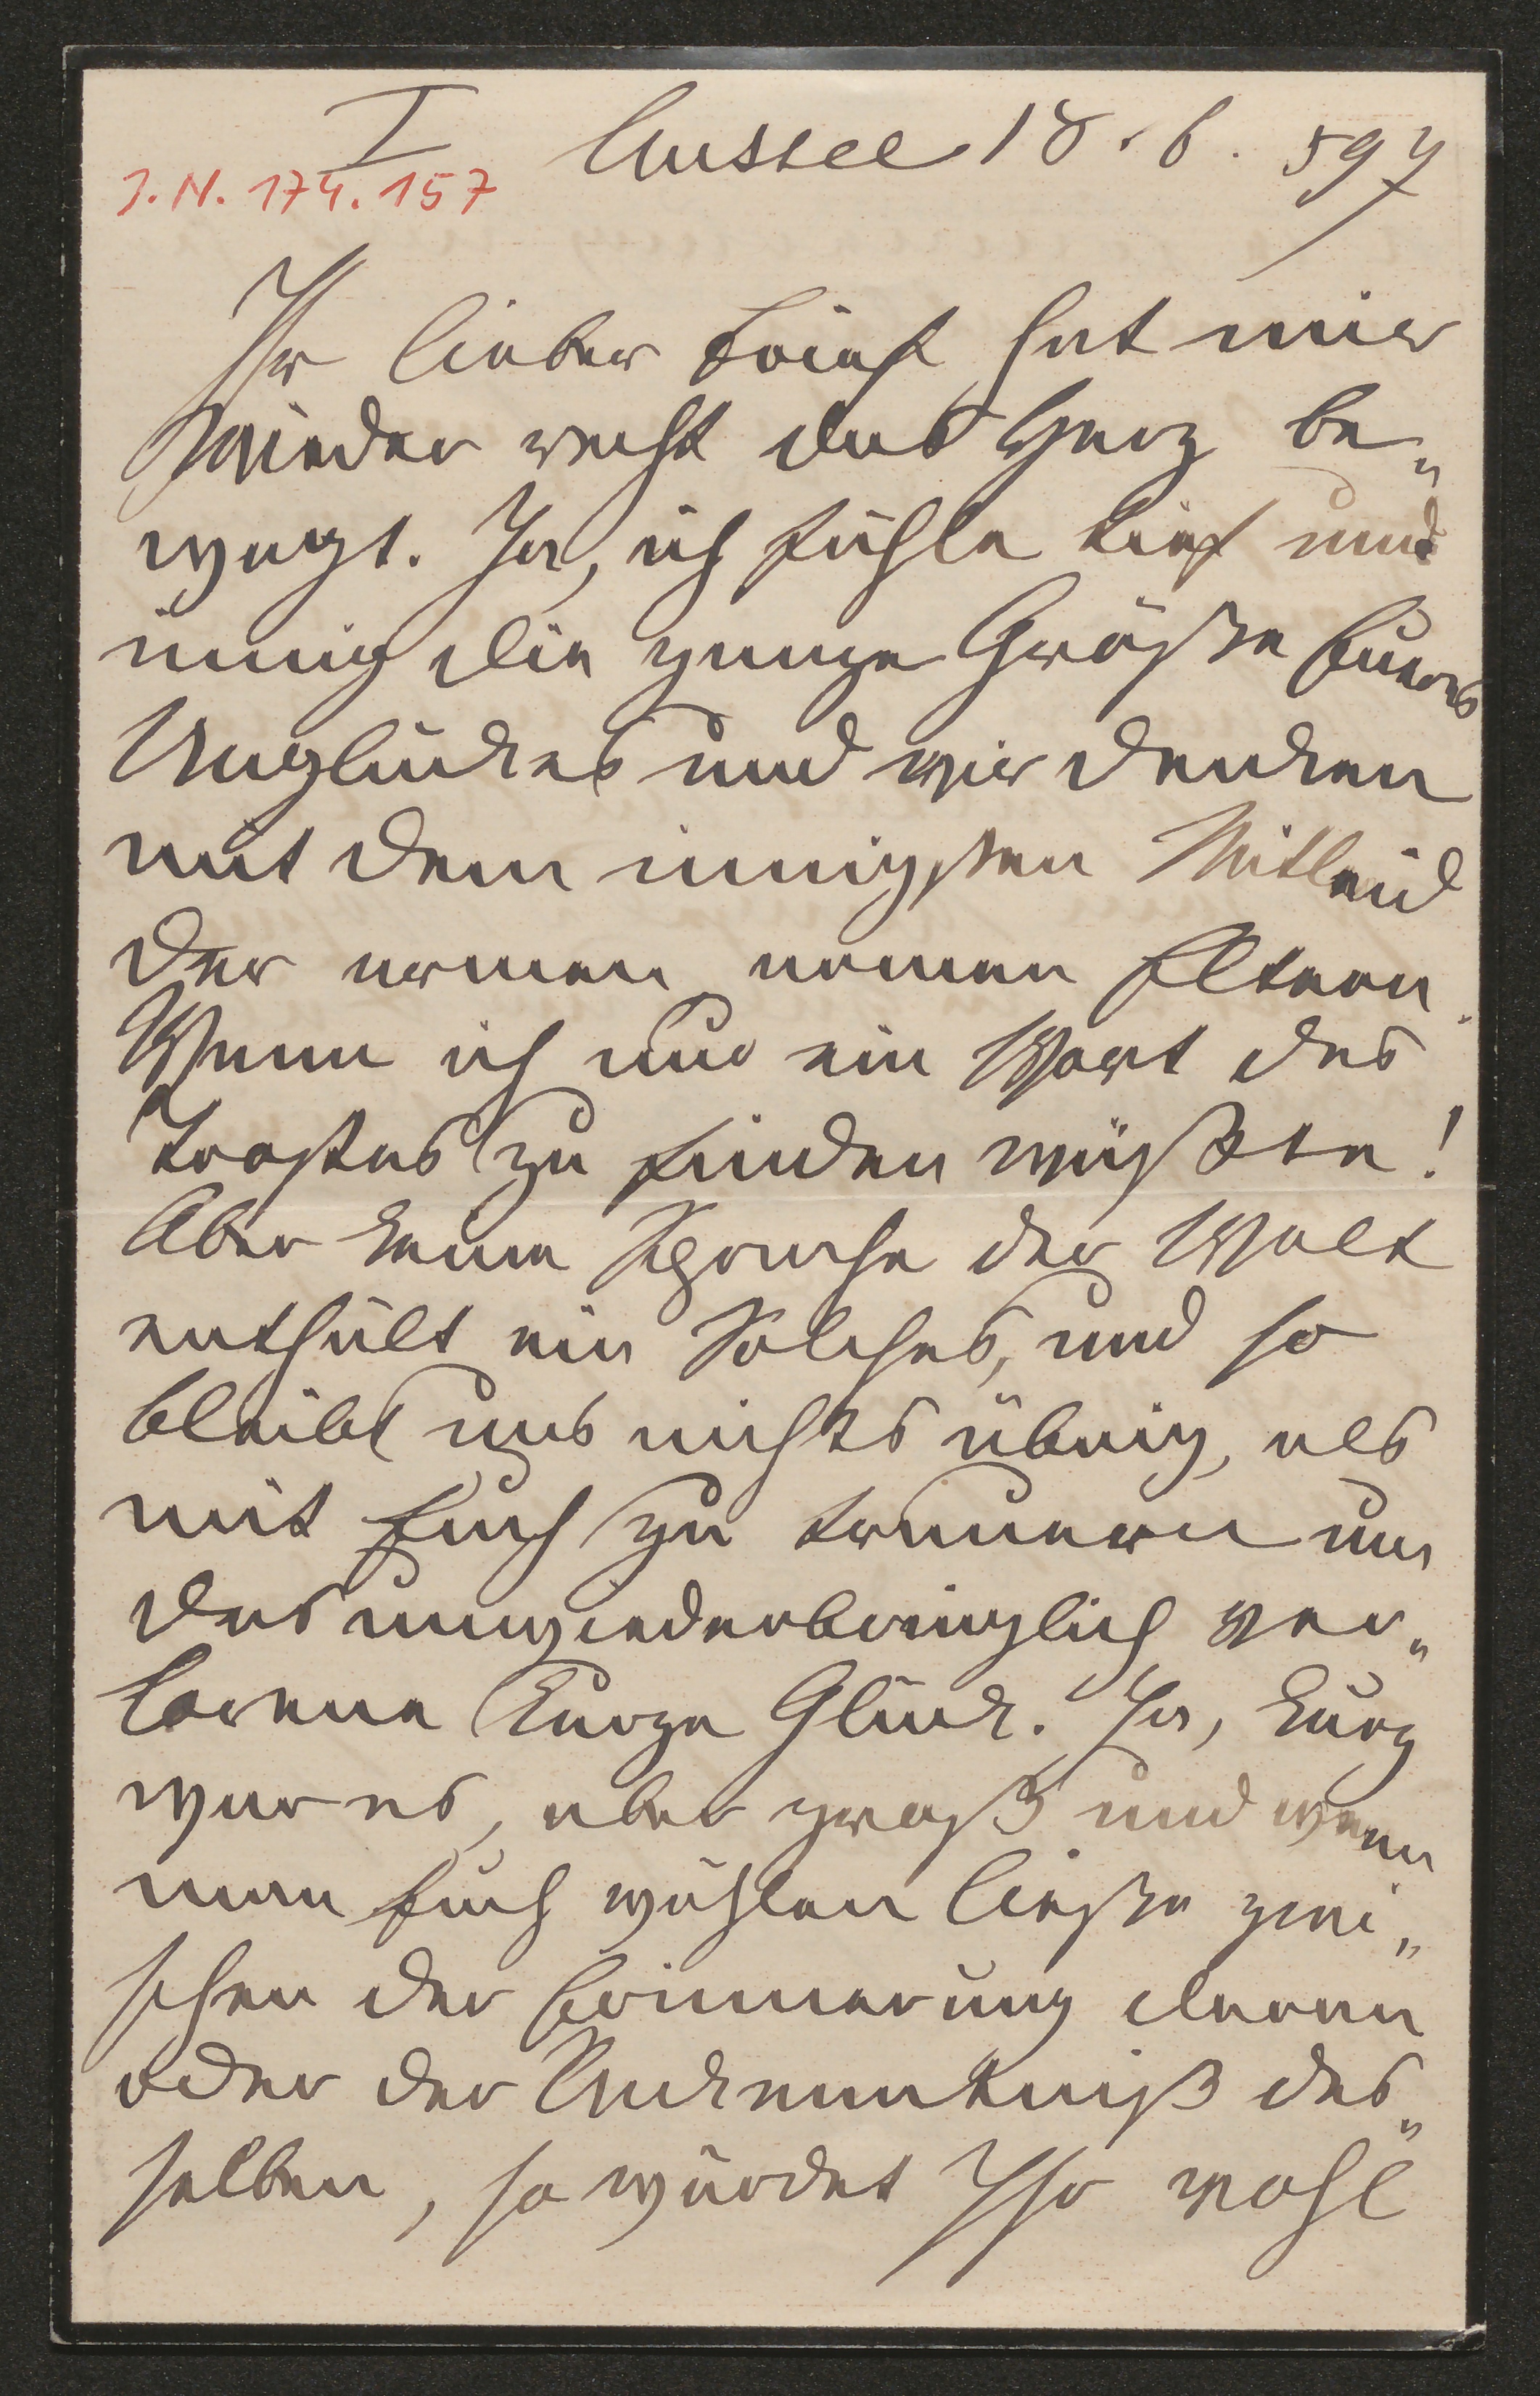 I Aussee 18.6. 597
J.N. 174.157
Ihr lieber Brief hat mir
wieder recht das Herz be„
wegt. Ja, ich fühle tief und
innig die ganze Größe Eures
Unglückes und wir denken
mit dem innigsten Mitleid
der armen armen Eltern.
Wenn ich nur ein Wort des
Trostes zu finden wüßte!
Aber keine Sprache der Welt
enthält ein Solches, und so
bleibt uns nichts übrig, als
mit Euch zu trauern um
das unwiederbringlich ver„
lorene kurze Glück. Ja, kurz
war es, aber groß und wenn
man Euch wählen ließe zwi„
schen der Erinnerung daran
oder der Unkenntniß des„
selben, so würdet Ihr wohl